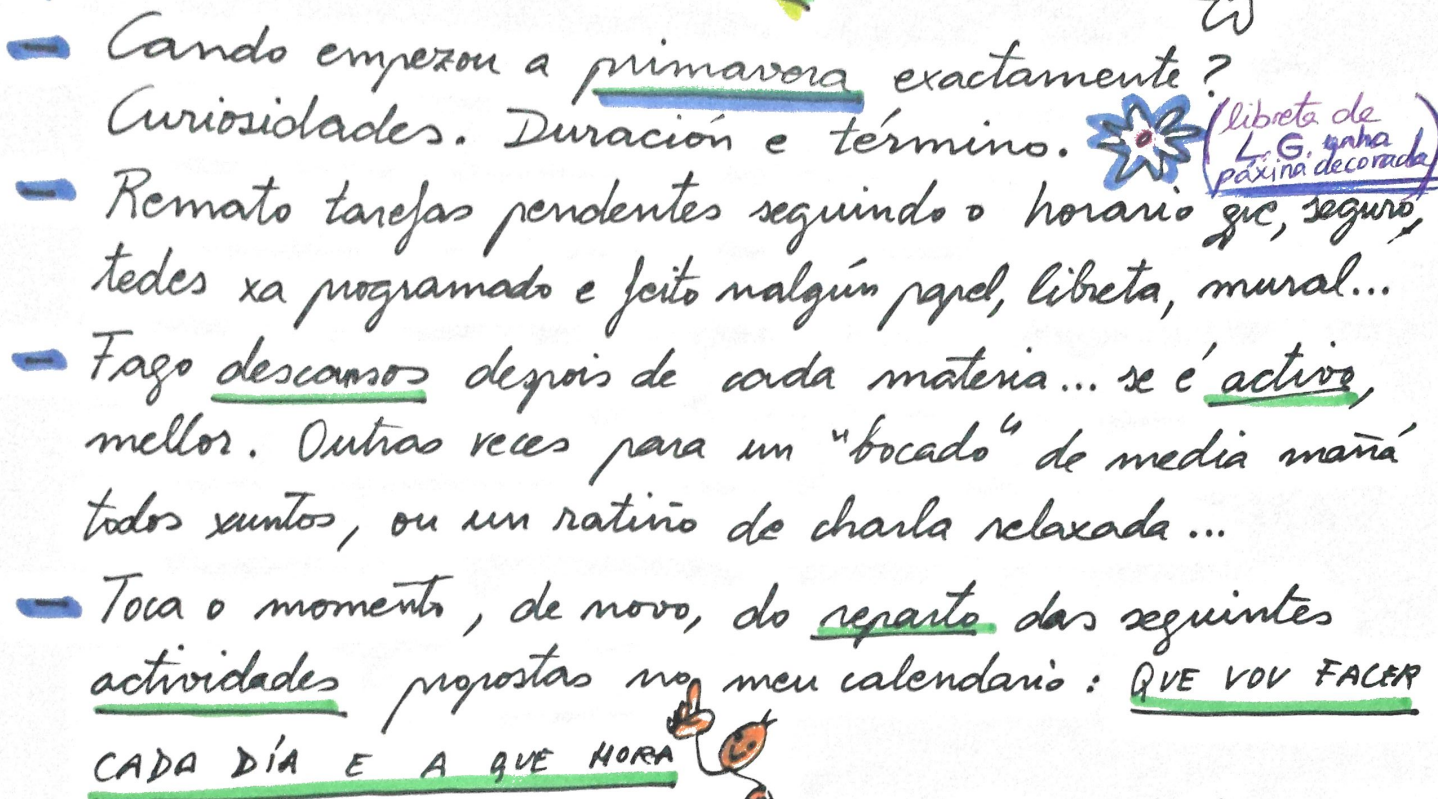 - Cando empezou a primavera exactamente?
Curiosidades. Duración e término.
(libreta de
L.G. unha
páxina decorada)
- Remato tarefas pendentes seguindo o horario que, seguro,
tedes xa programado e feito nalgún papel, libreta, mural...
- Fago descansos depois de cada materia... se é activo,
mellor. Outras veces para un "bocado" de media mañá
todos xuntos, ou un ratiño de charla relaxada...
- Toca o momento, de novo, do reparto das seguintes
actividades propostas no meu calendario: QUE VOU FACER
CADA DÍA E A QUE HORA